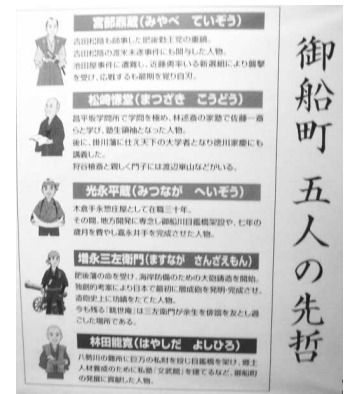 御船町 五人の先哲
宮部鼎蔵（みやべ ていぞう）
吉田松陰も師事した肥後勤王党の重鎮。
吉田松陰の渡米未遂事件にも関与した人物。
池田屋事件に遭難し、近藤勇率いる新選組により襲撃
を受け、応戦するも最期を覚り自刃。
松崎慊堂（まつざき こうどう）
昌平坂学問所で学問を極め、林述斎の家塾で佐藤一斎
らと学び、塾生領袖となった人物。
後に、掛川藩に仕え天下の大学者となり徳川家慶にも
講義した。
狩谷棭斎と親しく門子には渡辺崋山などがいる。
光永平蔵（みつなが へいぞう）
木倉手永惣庄屋として在職三十年。
その間、地方開発に専念し御船川目鑑橋架設や、七年の
歳月を費やし嘉永井手を完成させた人物。
増永三左衛門（ますなが さんざえもん）
肥後藩の命を受け、海岸防備のための大砲鋳造を開始。
独創的考案により日本で最初に層成砲を発明・完成させ、
造砲史上に功績をたてた人物。
今も残る「觀世庵」は三左衛門が余生を俳諧を友とし過
ごした場所である。
林田能寛（はやしだ よしひろ）
八勢川の難所に巨万の私財を投じ目鑑橋を架け、郷土
人材養成のために私塾「文武館」を建てるなど、御船町
の発展に貢献した人物。